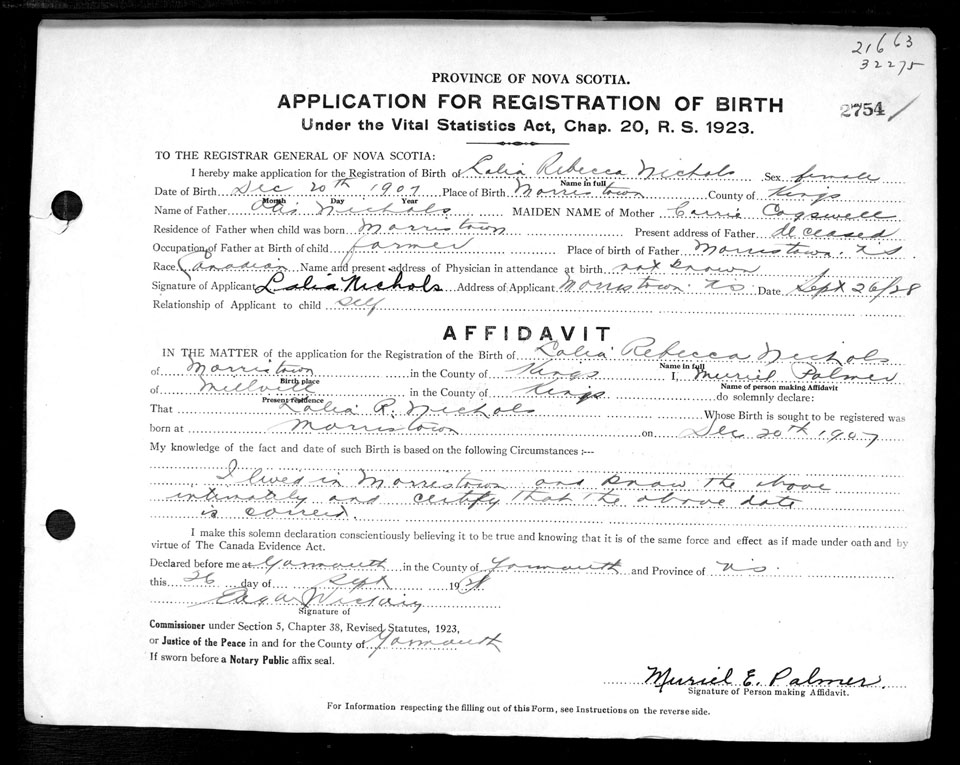 21663
32275
PROVINCE OF NOVA SCOTIA.
APPLICATION FOR REGISTRATION OF BIRTH
2754
Under the Vital Statistics Act, Chap. 20, R. S. 1923.
TO THE REGISTRAR GENERAL OF NOVA SCOTIA:
I hereby make application for the Registration of Birth of Lalia Rebecca Nichols Sex female
Name in full
Date of Birth Dec 20th 1907 Place of Birth Morristown County of Kings
Month Day Year
Name of Father Otis Nichols MAIDEN NAME of Mother Carrie Cogswell
Residence of Father when child was born Morristown Present address of Father deceased
Occupation of Father at Birth of child farmer Place of birth of Father Morristown. N S
Race Canadian Name and present address of Physician in attendance at birth not known
Signature of Applicant Lalia Nichols Address of Applicant Morristown. N S Date Sept 26/28
Relationship of Applicant to child self
AFFIDAVIT
IN THE MATTER of the application for the Registration of the Birth of Lalia Rebecca Nichols
Name in full
of Morristown in the County of Kings I, Muriel Palmer
Birth place Name of person making Affidavit
of Millville in the County of Kings do solemnly declare:
Present residence
That Lalia R. Nichols Whose Birth is sought to be registered was
born at Morristown on Dec 20th 1907
My knowledge of the fact and date of such Birth is based on the following Circumstances :---
I lived in Morristown and know the above
intimately and certify that the above date
is correct.
I make this solemn declaration conscientiously believing it to be true and knowing that it is of the same force and effect as if made under oath and by
virtue of The Canada Evidence Act.
Declared before me at Yarmouth in the County of Yarmouth and Province of N S.
this 26 day of Sept 1928
Signature of
Commissioner under Section 5, Chapter 38, Revised Statutes, 1923,
or Justice of the Peace in and for the County of Yarmouth
If sworn before a Notary Public affix seal.
Muriel E. Palmer.
Signature of Person making Affidavit.
For Information respecting the filling out of this Form, see Instructions on the reverse side.